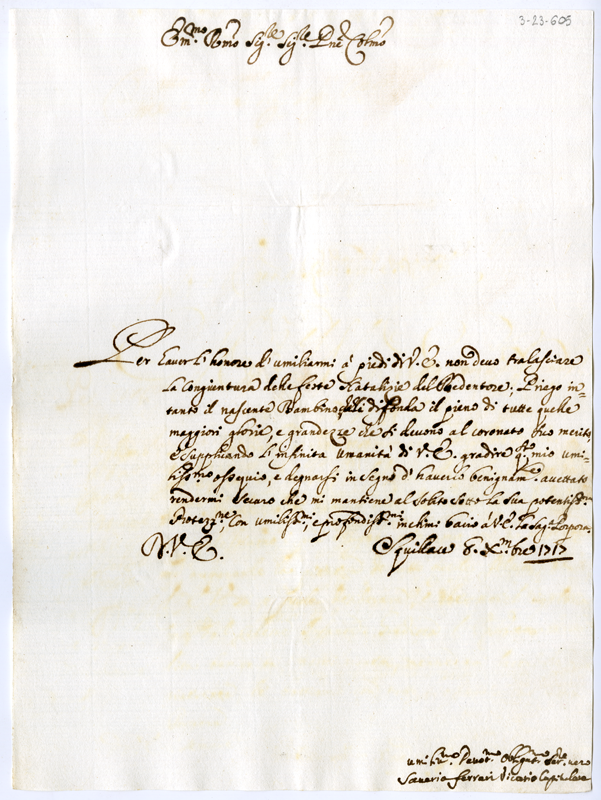 3-23-605
Em.mo Rmo Sig.re Sig.re Pne Colmo
Per haver l'honore d'umiliarmi á piedi di V. E. non devo tralasciare
la Congiuntura delle feste Natalizie del Redentore; Priego in=
tanto il nascente Bambino, diffonda il pieno di tutte quelle
maggiori glorie, e grandezze che si devono al coronato suo merito,
e Supplicando l'infinita umanità di V. E. gradire q.sto mio umi=
lissimo ossequio, e degnarsi in Segno d'haverlo benignam.te accettato
rendermi Sicuro che mi mantiene al Solito Sotto la Sua potentiss.ma
Protez.ne, Con umiliss.mi e profondiss.mi inchini bacio á V. E. la Sag.a Porpora.
D. V. E. Squillace 8. X.mbre 1717
umiliss.mo Devot.mo Obligat.mo Ser.re vero
Saverio Ferrari Vicario Capitolare